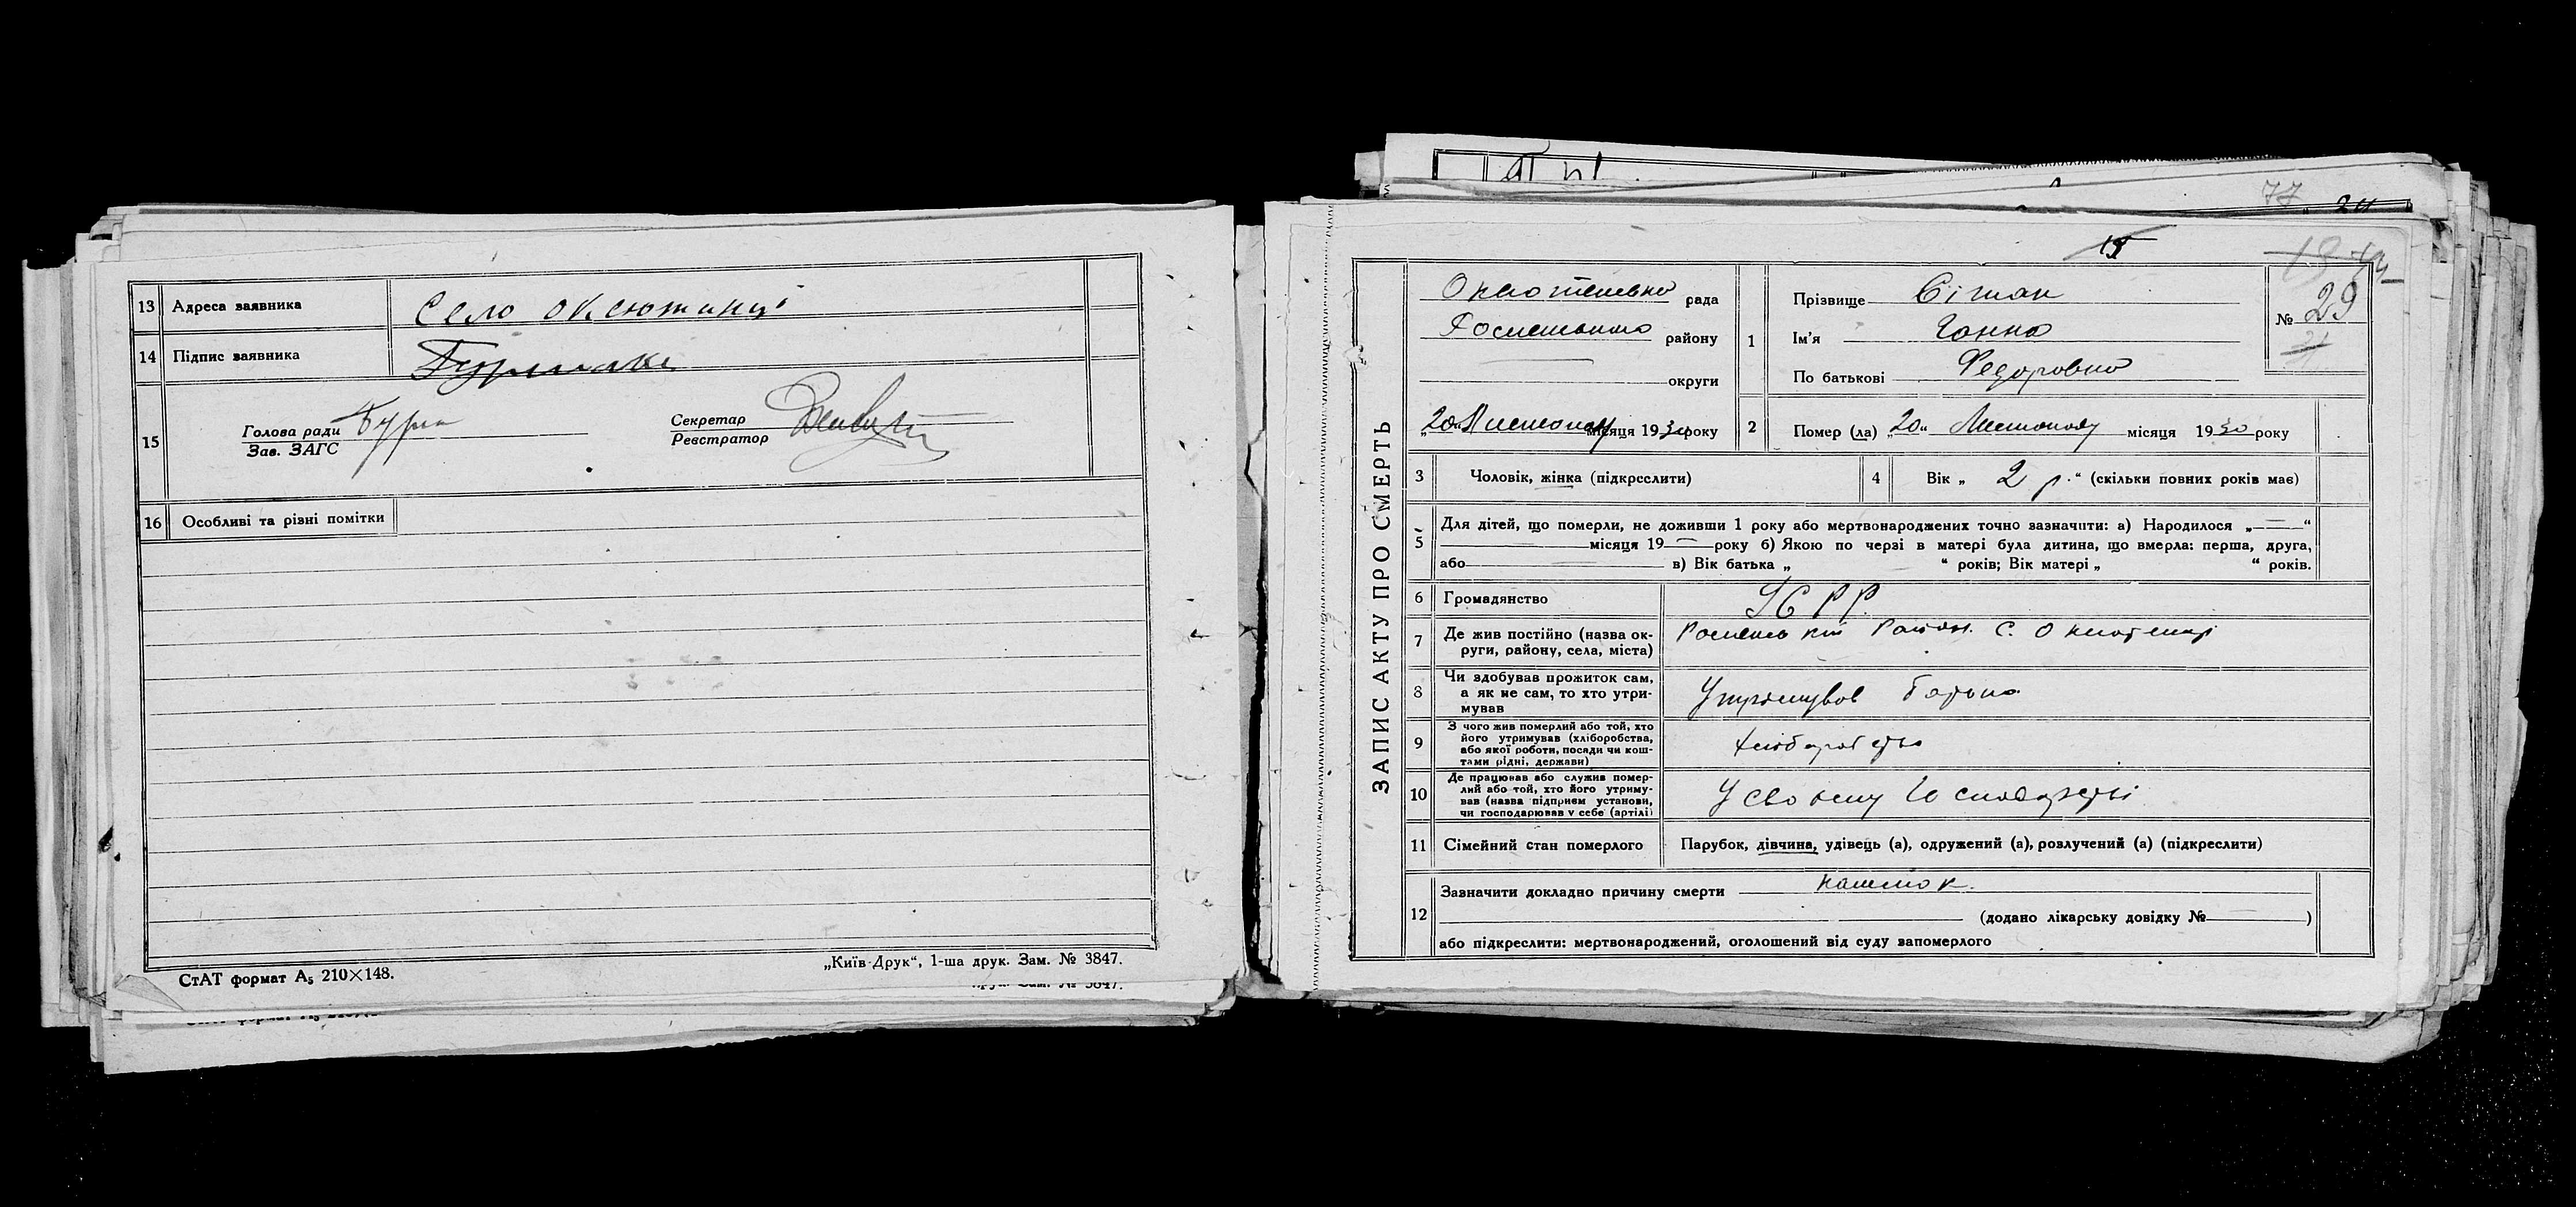 13 Адреса заявника село оксютинці
14 Підпис заявника
15 Голова ради Бурик
Зав. ЗАГС
Секретар
Реєстратор
16 Особливі та різні помітки
СтАТ формат А5 210×148.
„Київ-Друк“, 1-ша друк. Зам. № 3847.
77
24
15
ЗАПИС АКТУ ПРО СМЕРТЬ
рада
Роменського району
округи
„20“ Листопаду місяця 1930 року
1 Прізвище Сітан
Ім'я Ганна
По батькові Федоровна
№ 29
2 Помер (ла) „20“ Листопаду місяця 1930 року
3 Чоловік, жінка (підкреслити)
4 Вік „ 2 р. “ (скільки повних років має)
5 Для дітей, що померли, не доживши 1 року або мертвонароджених точно зазначити: а) Народилося „—“
місяця 19 — року б) Якою по черзі в матері була дитина, що вмерла: перша, друга,
або в) Вік батька „ “ років; Вік матері „ “ років.
6 Громадянство УСРР
7 Де жив постійно (назва округи, району, села, міста) Роменський Район. С. Оксютинці
8 Чи здобував прожиток сам, а як не сам, то хто утримував Утримував батько
9 З чого жив померлий або той, хто його утримував (хліборобства, або якої роботи, посади чи коштами рідні, держави) хліборобство
10 Де працював або служив померлий або той, хто його утримував (назва підприєм установи, чи господарював у себе (артілі) У своєму Господарстві
11 Сімейний стан померлого Парубок, дівчина, удівець (а), одружений (а), розлучений (а) (підкреслити)
12 Зазначити докладно причину смерти кашлюк.
(додано лікарську довідку № )
або підкреслити: мертвонароджений, оголошений від суду запомерлого